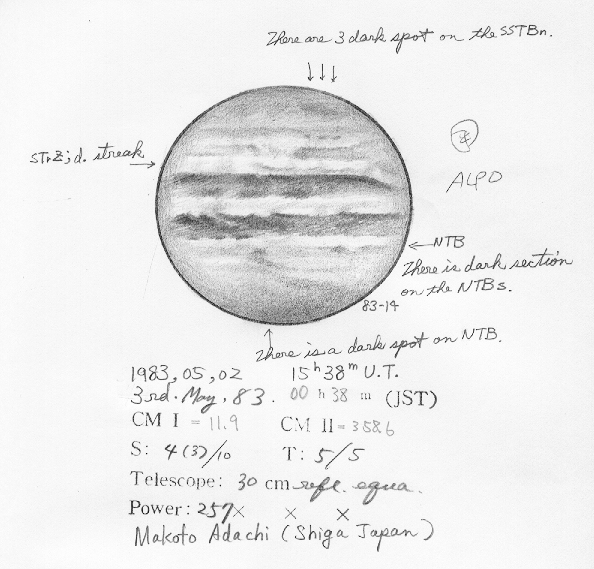 There are 3 dark spot on the SSTBn.
STrZ; d. streak
ALPO
NTB
There is dark section
on the NTBs.
83-14
There is a dark spot on NTB.
1983, 05, 02 15h 38m U.T.
3rd. May, 83. 00 h 38 m (JST)
CM I = 11.9 CM II = 358.6
S: 4(3)/10 T: 5/5
Telescope: 30 cm refl. equa.
Power: 257× × ×
Makoto Adachi (Shiga Japan)